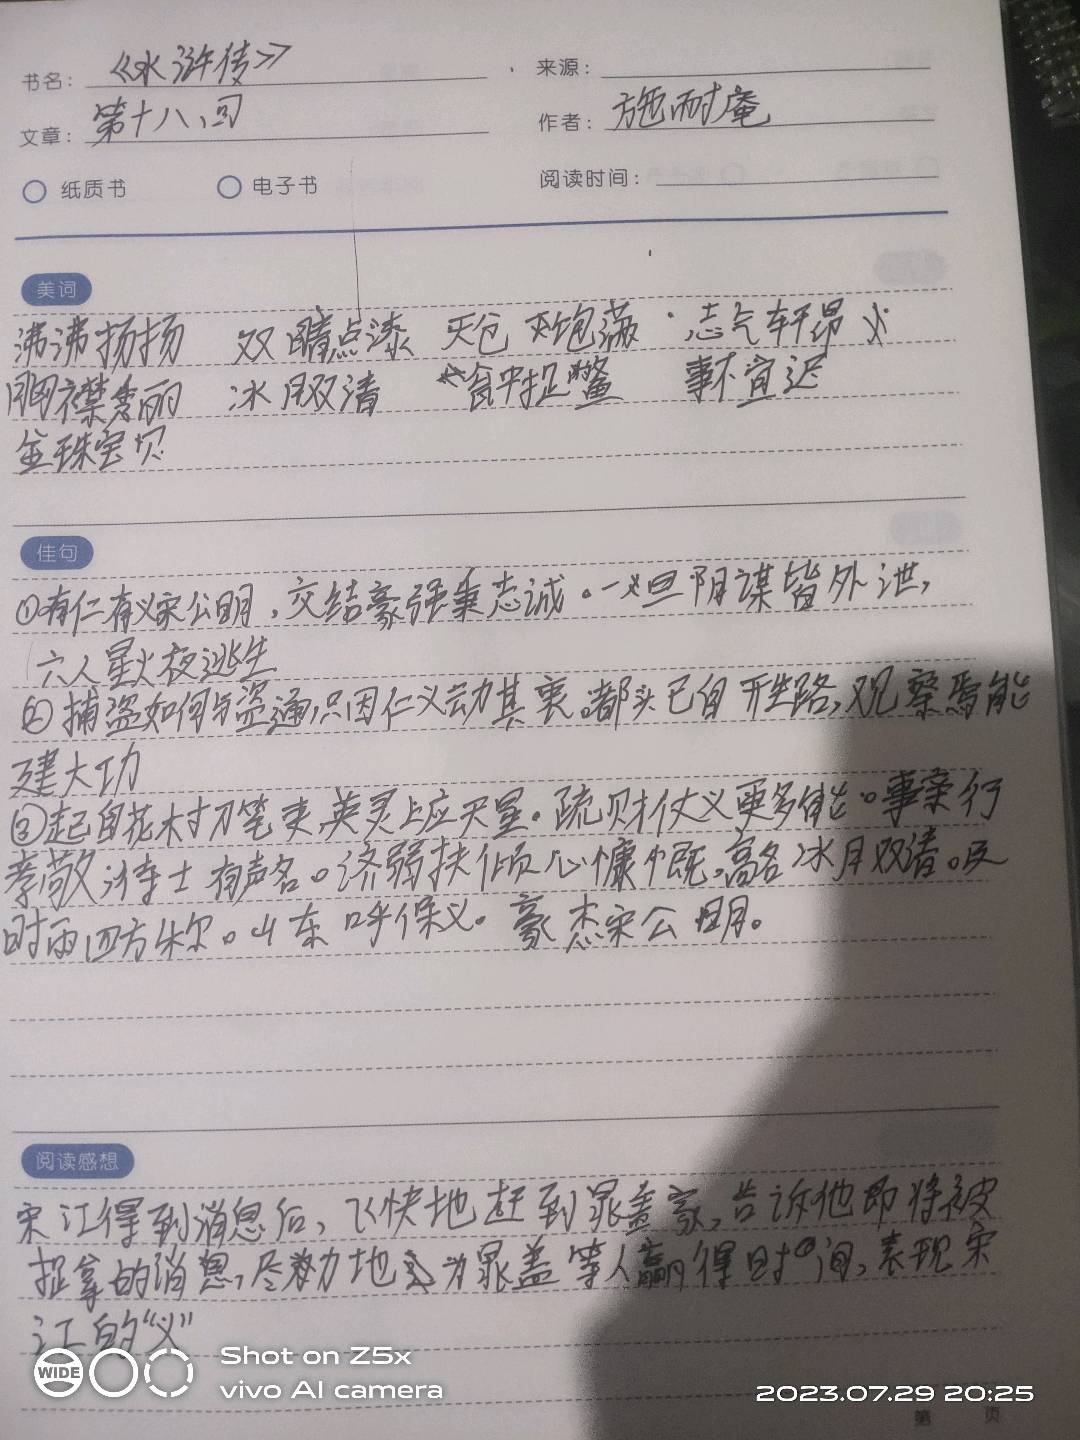 书名：《水浒传》 来源：
文章：第十八回 作者：施耐庵
纸质书 电子书 阅读时间：
美词
沸沸扬扬 双睛点漆 天仓饱满 志气轩昂
胸襟秀丽 冰月双清 瓮中捉鳖 事不宜迟
金珠宝贝
佳句
①有仁有义宋公明，交结豪强秉志诚。一旦阴谋皆外泄，
六人星火夜逃生
②捕盗如何与盗通，只因仁义动其衷。都头已自开生路，观察焉能
建大功
③起自花村刀笔吏，英灵上应天星。疏财仗义更多能。事亲行
孝敬，待士有声名。济弱扶倾心慷慨，高名冰月双清。及
时雨四方称。山东呼保义。豪杰宋公明。
阅读感想
宋江得到消息后，飞快地赶到晁盖家，告诉他即将被
捉拿的消息，尽努力地为晁盖等人赢得时间，表现宋
江的“义”
WIDE Shot on Z5x
vivo AI camera
2023.07.29 20:25
第 页